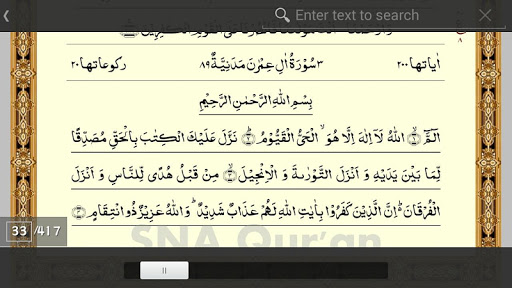 Enter text to search
اٰیاتها۲۰۰ ۳ سُوْرَةُ اٰلِ عِمْرٰنَ مَدَنِیَّةٌ ۸۹ رکوعاتها۲۰
بِسْمِ اللّٰهِ الرَّحْمٰنِ الرَّحِیْمِ
الٓمّٓ ۙ﴿۱﴾ اللّٰهُ لَاۤ اِلٰهَ اِلَّا هُوَ ۙ الْحَیُّ الْقَیُّوْمُ ؕ﴿۲﴾ نَزَّلَ عَلَیْكَ الْكِتٰبَ بِالْحَقِّ مُصَدِّقًا
لِّمَا بَیْنَ یَدَیْهِ وَ اَنْزَلَ التَّوْرٰىةَ وَ الْاِنْجِیْلَ ۙ﴿۳﴾ مِنْ قَبْلُ هُدًی لِّلنَّاسِ وَ اَنْزَلَ
الْفُرْقَانَ ؕ۬ اِنَّ الَّذِیْنَ كَفَرُوْا بِاٰیٰتِ اللّٰهِ لَهُمْ عَذَابٌ شَدِیْدٌ ؕ وَ اللّٰهُ عَزِیْزٌ ذُو انْتِقَامٍ ؕ﴿۴﴾
33 /417
SNA Qur'an